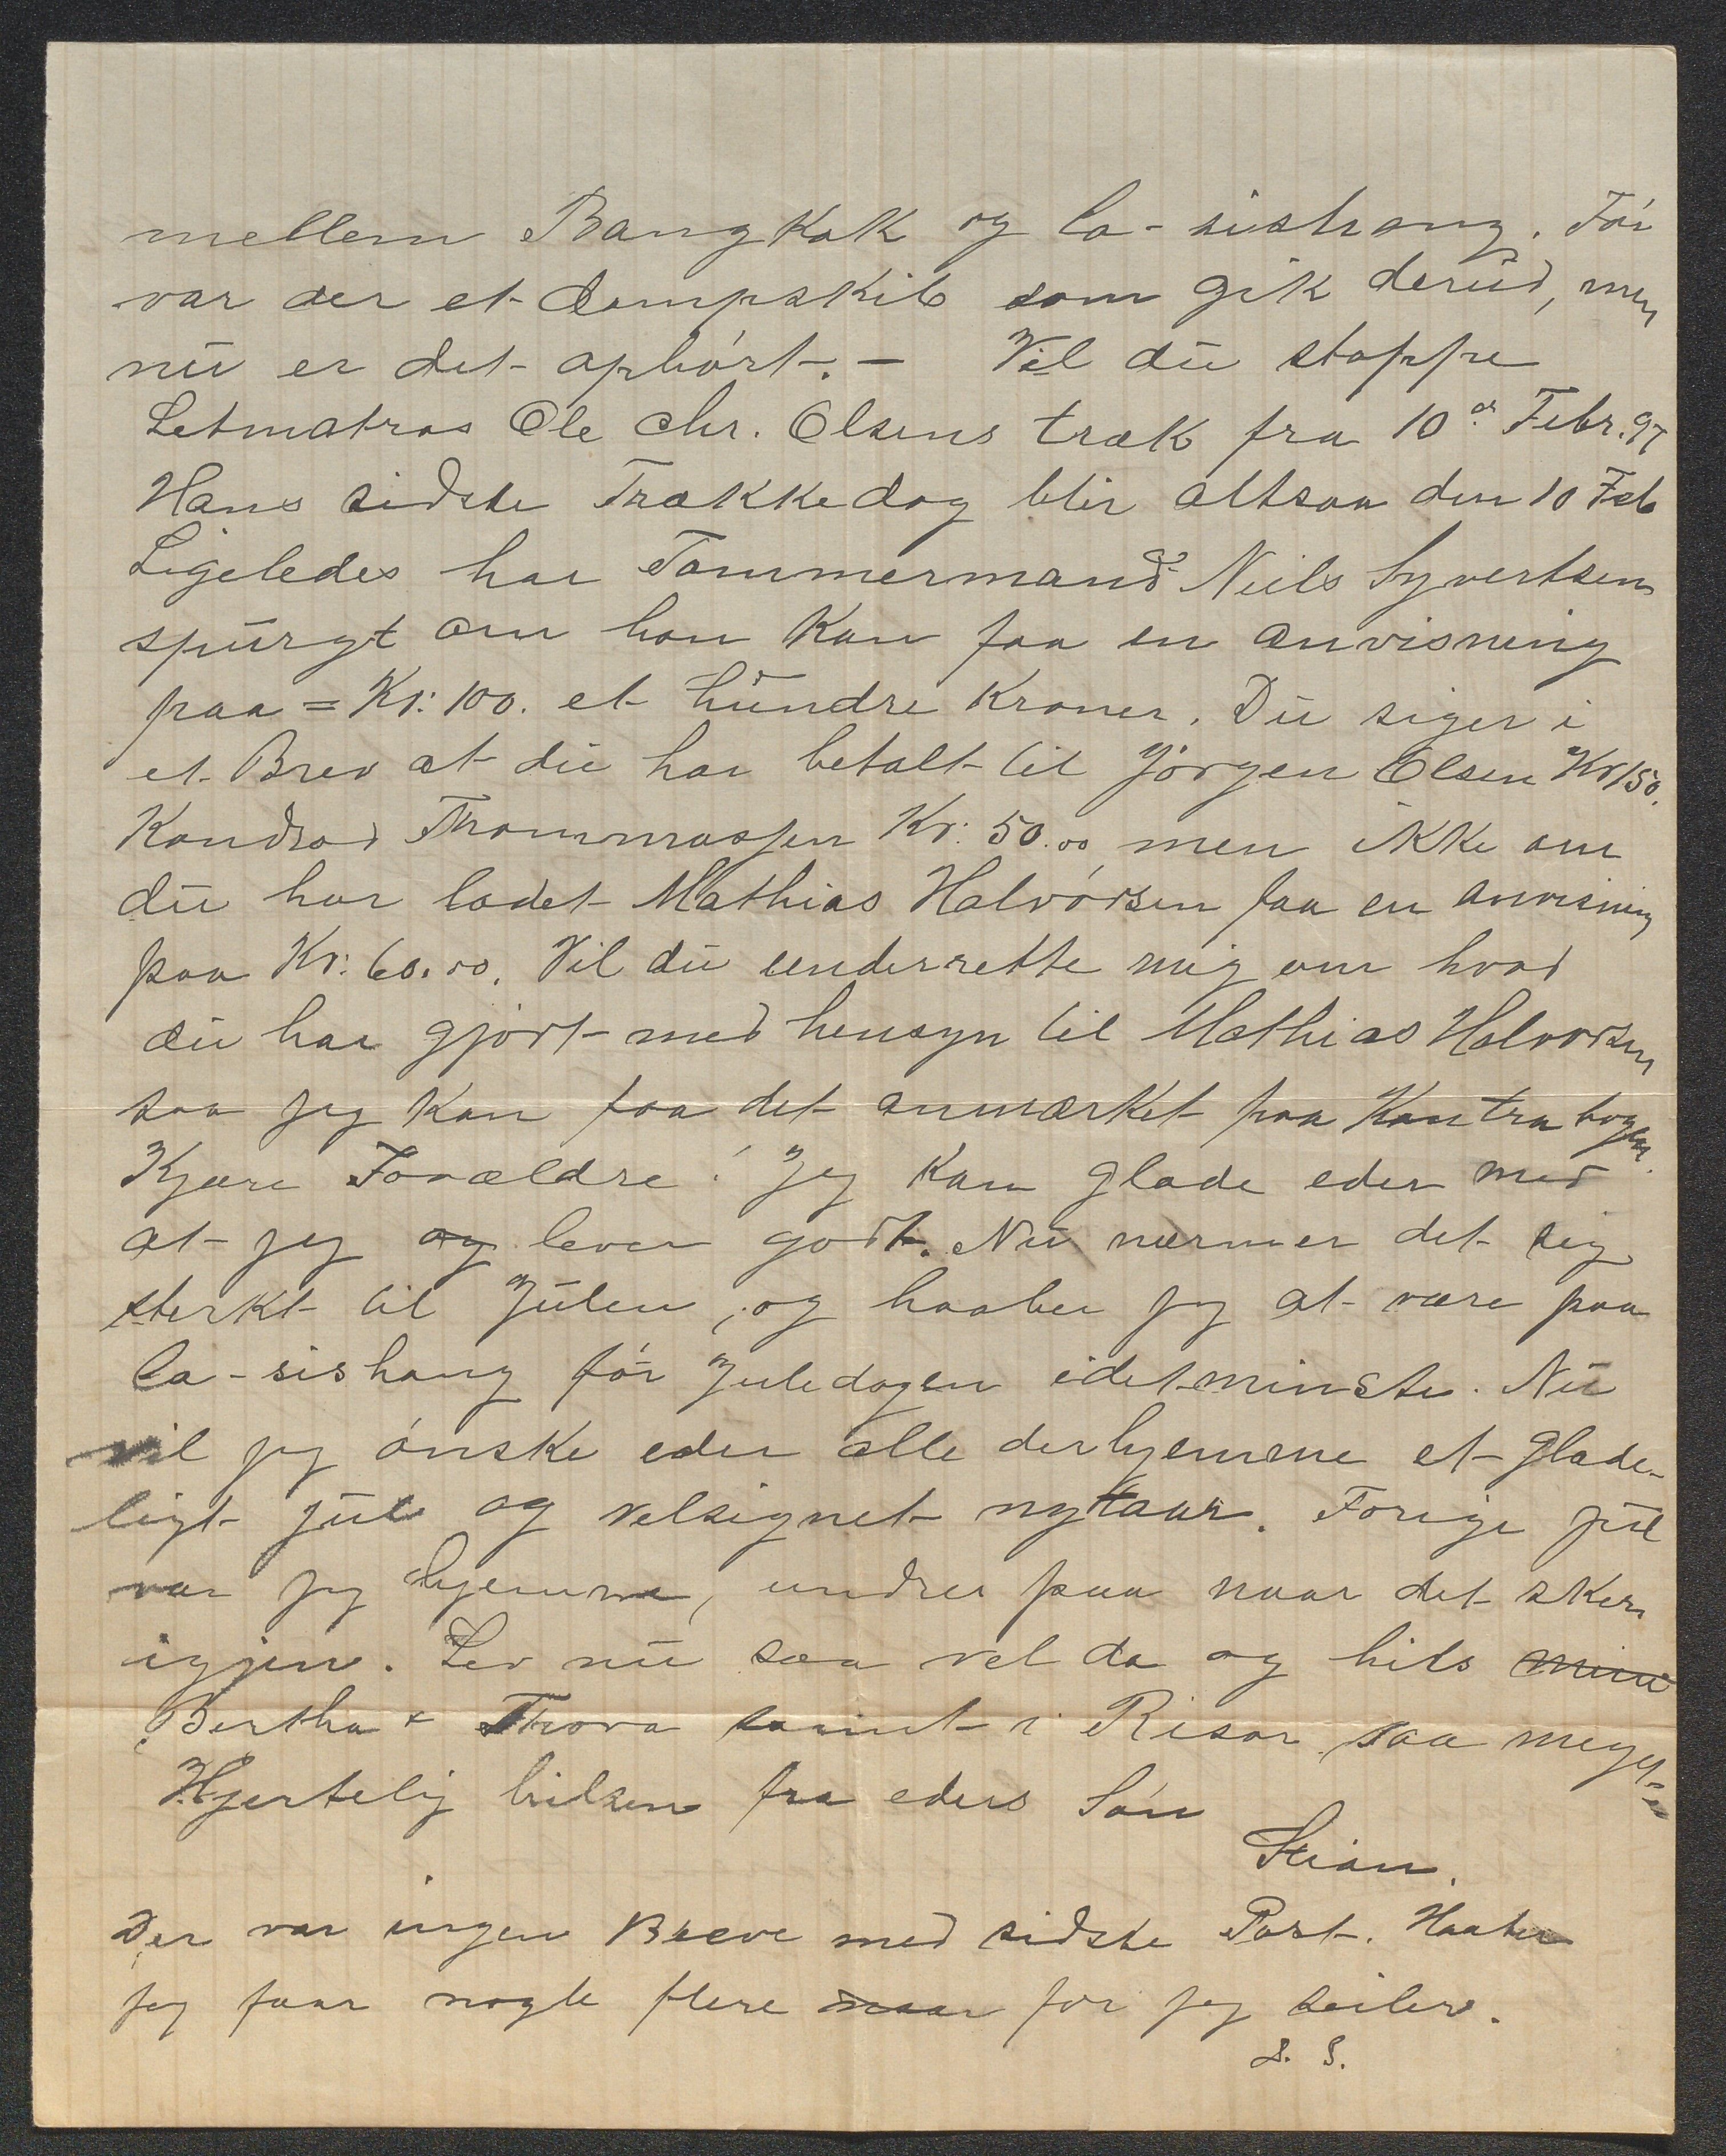 mellem Bangkok og Co-sishang. Før
var der et dampskib som gik derud, men
nu er det ophørt. — Vil du stoppe
Letmatros Ole Chr. Olsens træk fra 10de Febr. 97
Hans sidste Trækkedag blir altsaa den 10 Feb
Ligeledes har Tømmermand Niels Syvertsen
spurgt om han kan faa en anvisning
paa = Kr: 100. et hundre Kroner. Du siger i
et Brev at du har betalt til Jørgen Olsen Kr 150.
Kondrad Thommassen Kr: 50.00 men ikke om
du har ladet Mathias Halvorsen faa en anvisning
paa Kr: 60.00. Vil du underrette mig om hvad
du har gjort med hensyn til Mathias Halvorsen
saa jeg kan faa det anmærket paa Kontrabogen.
Kjære Forældre! Jeg kan glæde eder med
at jeg og lever godt. Nu nærmer det sig
sterkt til Julen, og haaber jeg at være paa
Co-sishang før Juledagen idetminste. Nu
vil jeg ønske eder alle derhjemme et glade-
ligt jul og velsignet nytaar. Forige jul
var jeg hjemme, undres paa naar det sker
igjen. Lev nu saa vel da og hils mine
Bertha & Thora samt i Risør saa meget
Hjertelig hilsen fra eders Søn
Stian.
Der var ingen Breve med sidste Post. Haaber
jeg faar nogle flere naar før jeg seiler.
S. S.